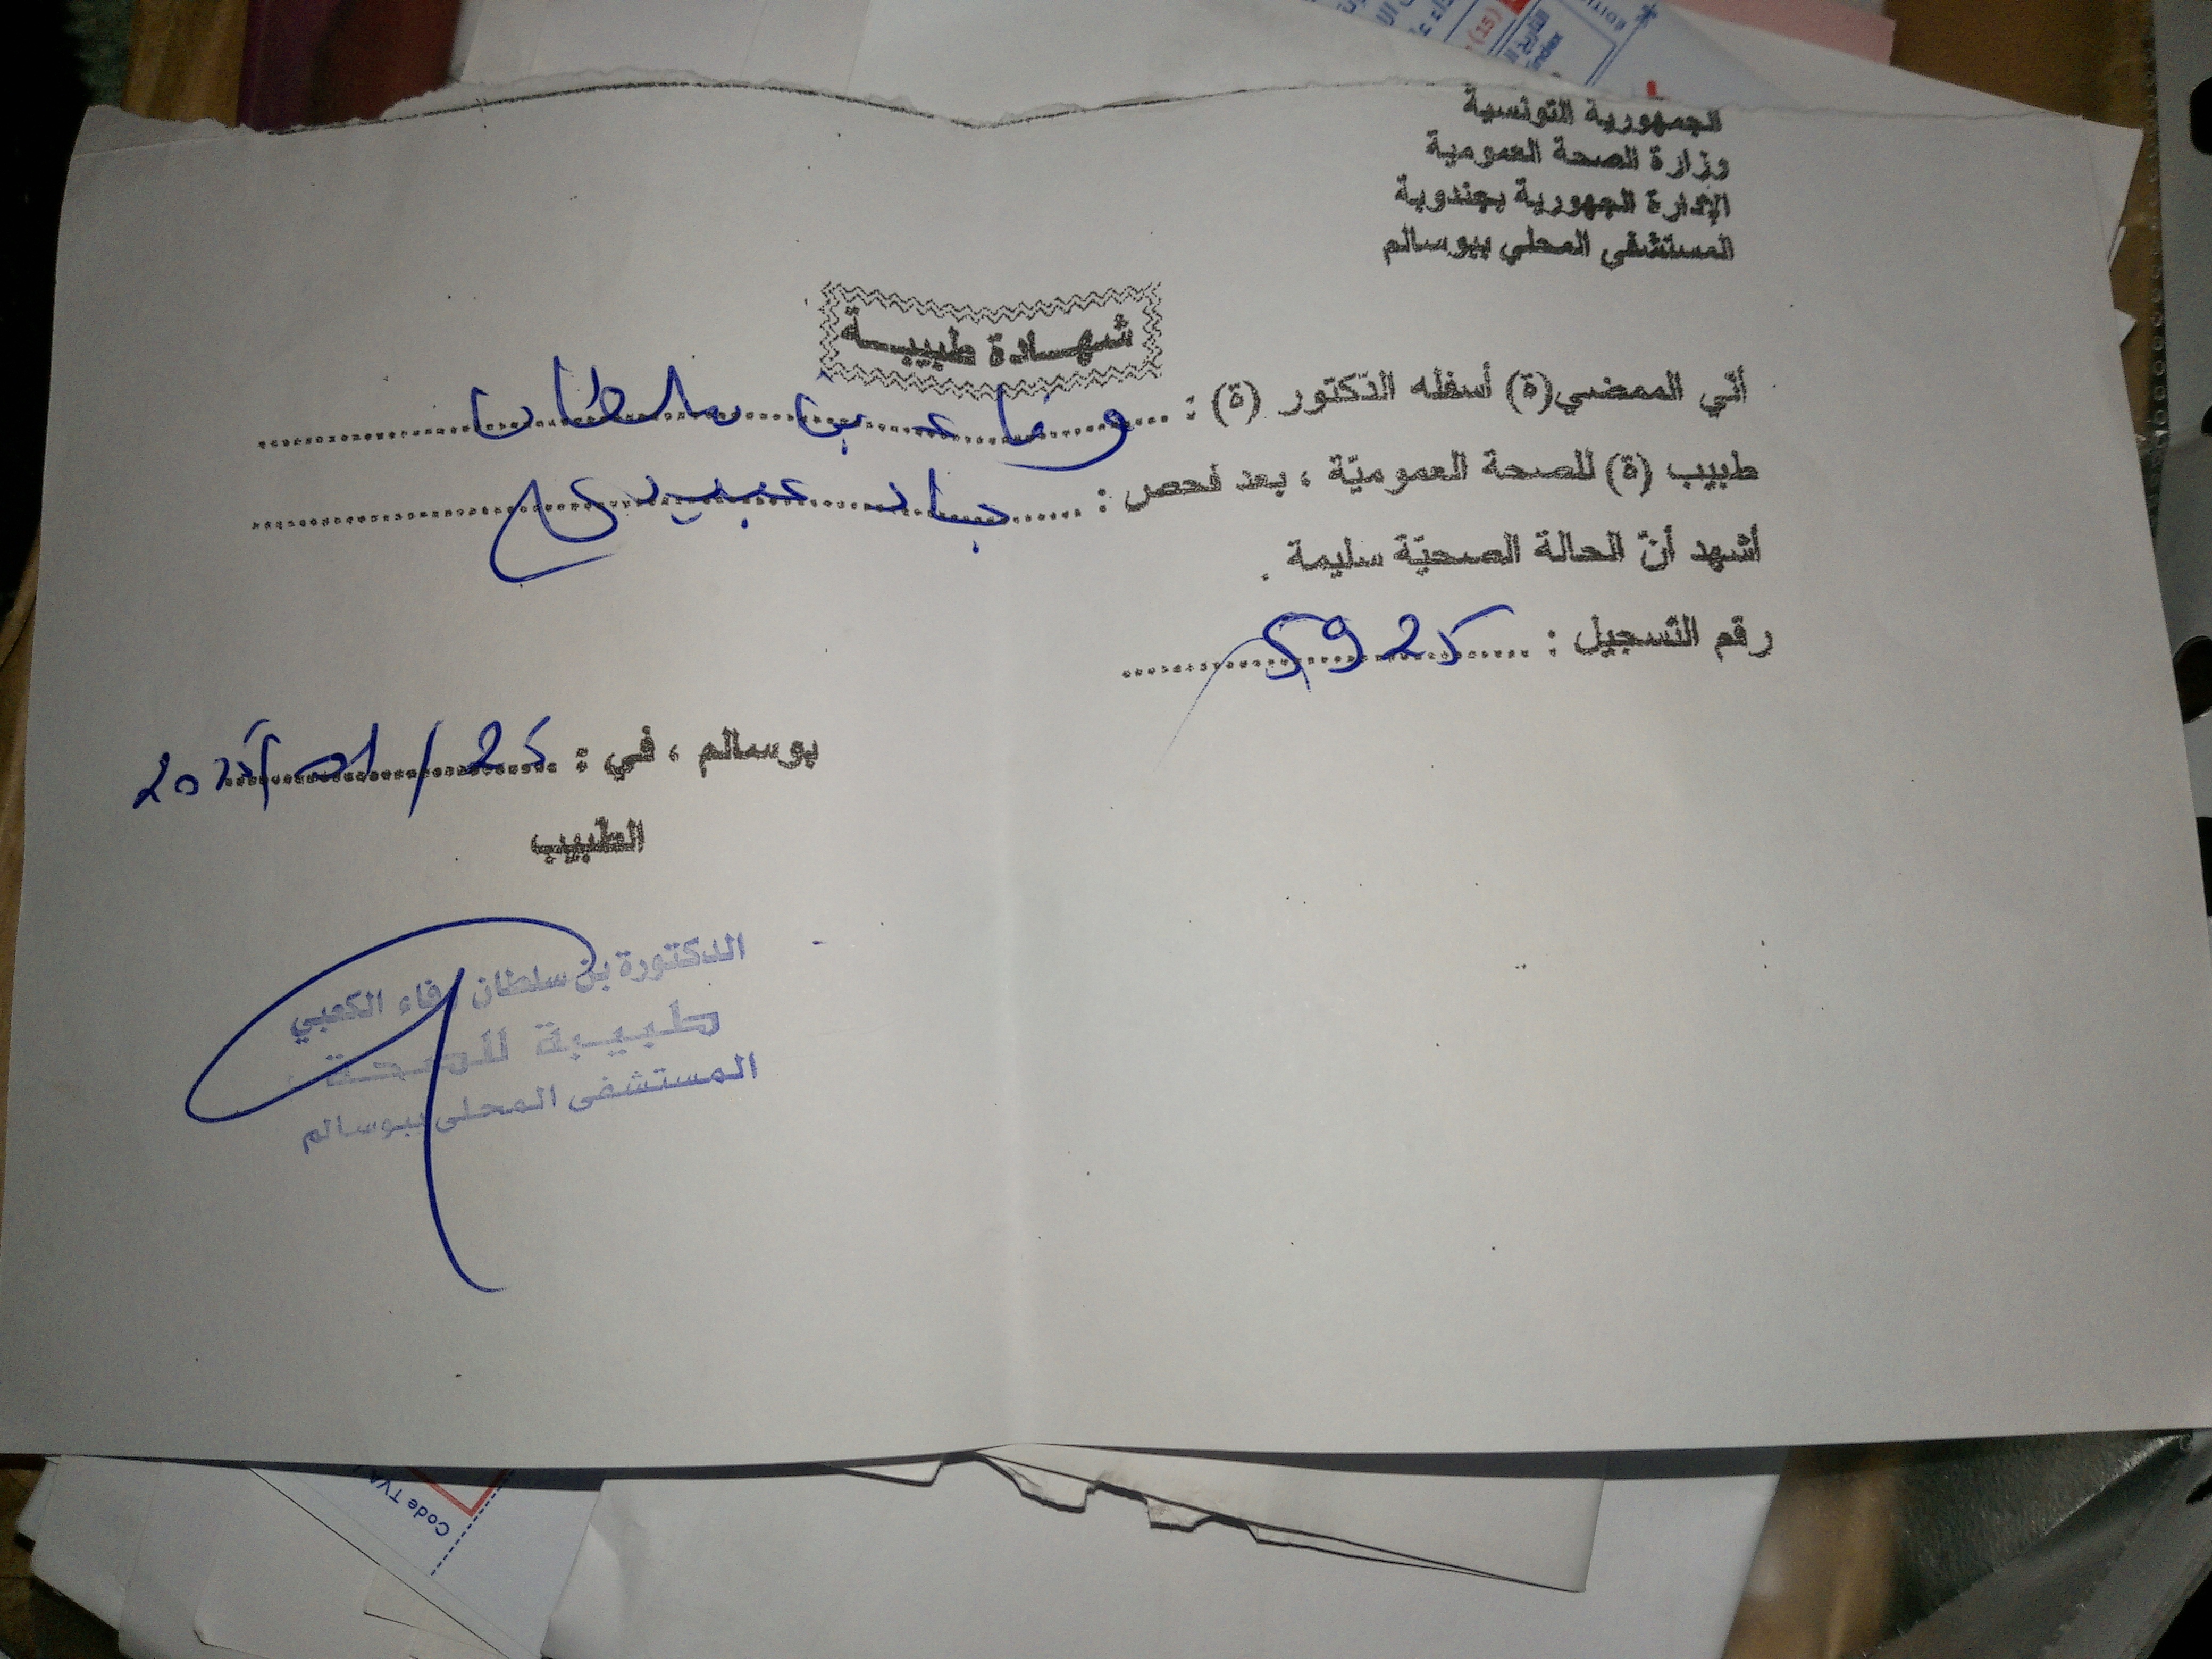 الجمهورية التونسية
وزارة الصحة العمومية
الإدارة الجهورية بجندوبة
المستشفى المحلي ببوسالم
شهادة طبيبة
أنّي الممضي(ة) أسفله الدّكتور (ة) : وفاء بن سلطان
طبيب (ة) للصحة العموميّة ، بعد فحص : جاد عبيدي
أشهد أنّ الحالة الصحيّة سليمة .
رقم التسجيل : 5925
بوسالم ، في : 25 /
الطبيب
الدكتورة بن سلطان وفاء الكعبي
طبيبة للصحة
المستشفى المحلي ببوسالم
Code TVA